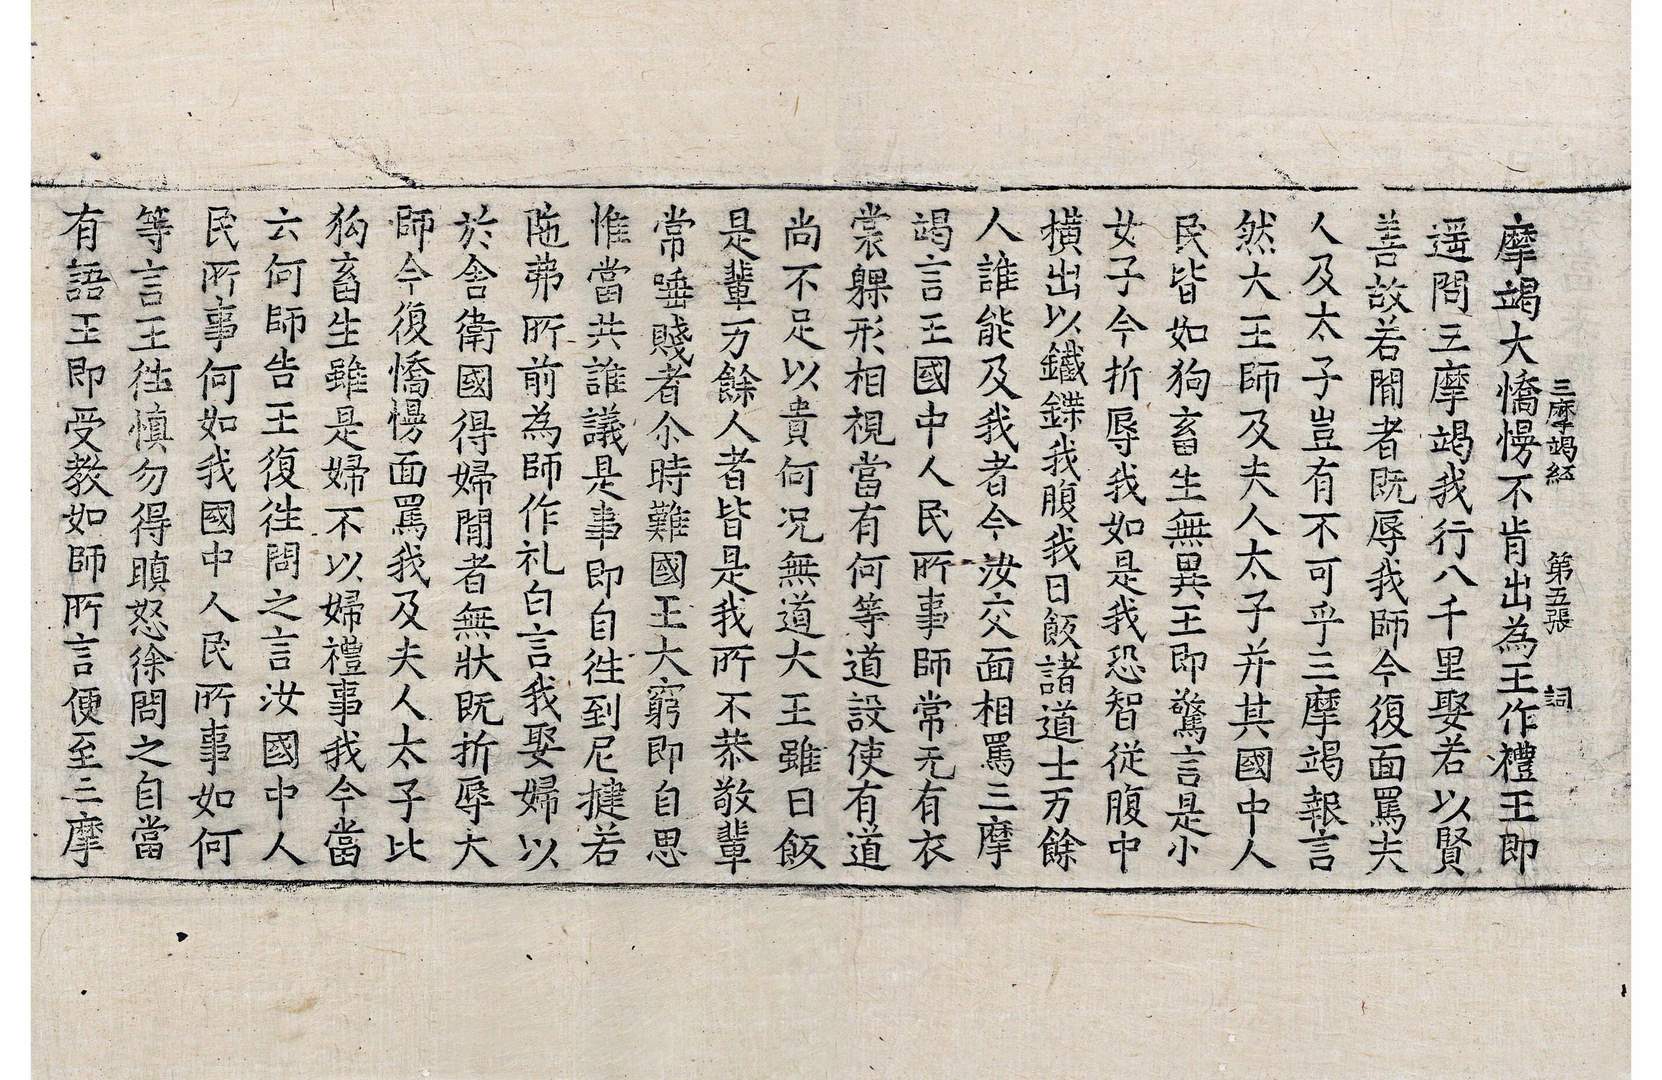 三摩竭經　第五張　詞
摩竭大憍慢不肯出為王作禮王即
遥問三摩竭我行八千里娶若以賢
善故若聞者既辱我師今復面罵夫
人及太子豈有不可乎三摩竭報言
然大王師及夫人太子并其國中人
民皆如狗畜生無異王即驚言是小
女子今折辱我如是我恐智從腹中
橫出以鐵鍱我腹我日飯諸道士万餘
人誰能及我者今汝交面相罵三摩
竭言王國中人民所事師常无有衣
裳躶形相視當有何等道設使有道
尚不足以貴何况無道大王雖日飯
是輩万餘人者皆是我所不恭敬輩
常唾賤者尒時難國王大窮即自思
惟當共誰議是事即自徃到尼揵若
陁弗所前為師作礼白言我娶婦以
於舍衛國得婦聞者無狀既折辱大
師今復憍慢面罵我及夫人太子比
狗畜生雖是婦不以婦禮事我今當
云何師告王復徃問之言汝國中人
民所事何如我國中人民所事如何
等言王徃慎勿得瞋怒徐問之自當
有語王即受教如師所言便至三摩